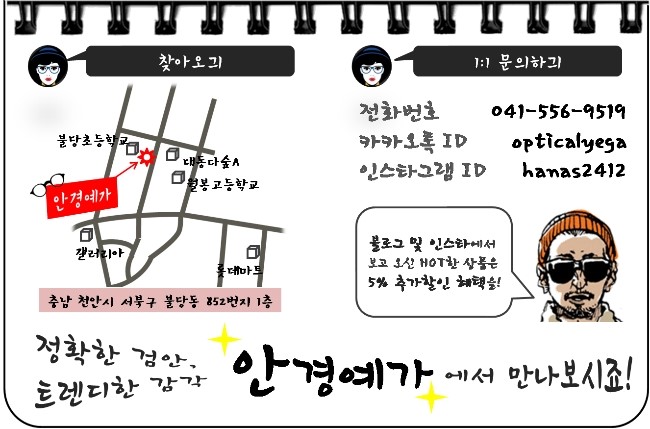 찾아오긔
1:1 문의하긔
불당초등학교
대동다숲A
월봉고등학교
안경예가
갤러리아
롯데마트
충남 천안시 서북구 불당동 852번지 1층
전화번호 041-556-9519
카카오톡 ID opticalyega
인스타그램 ID hanas2412
블로그 및 인스타에서
보고 오신 HOT한 상품은
5% 추가할인 혜택을!
정확한 검안,
트렌디한 감각
안경예가에서 만나보시죠!